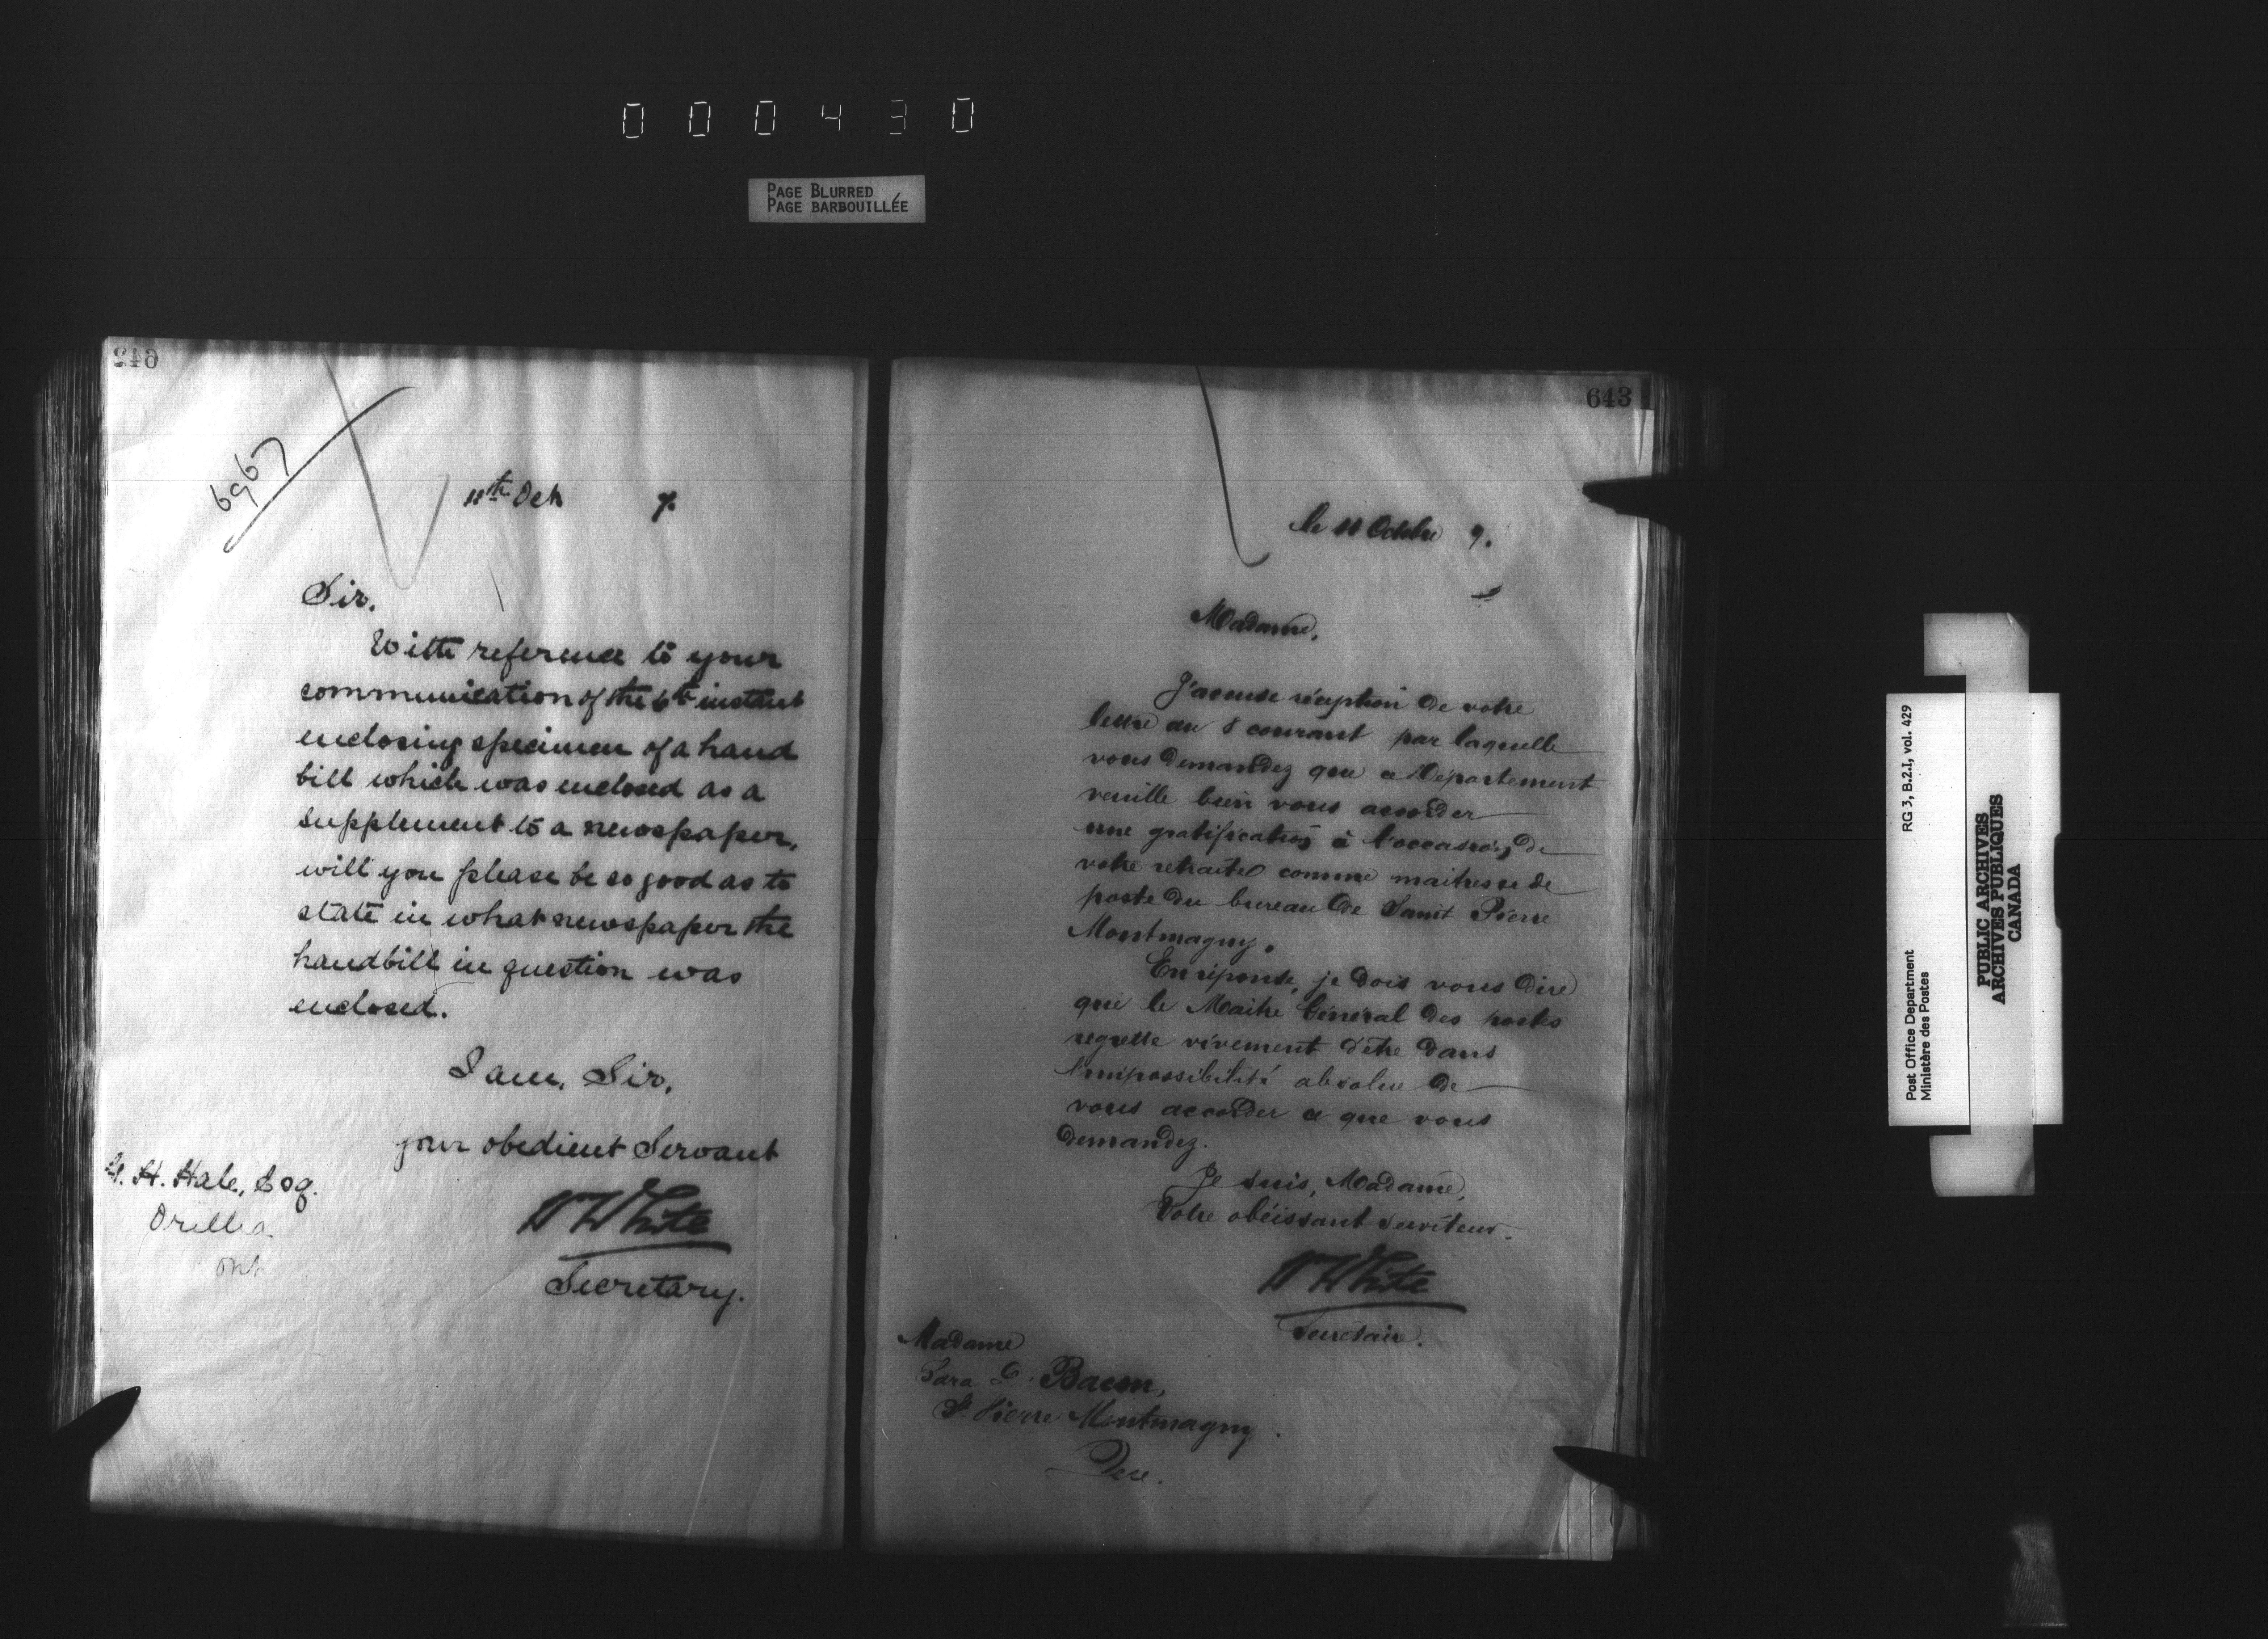 000430
PAGE BLURRED
PAGE BARBOUILLÉE
642
6967
11th Oct 7.
Sir,
With reference to your
communication of the 6th instant
enclosing specimen of a hand
bill which was enclosed as a
supplement to a newspaper,
will you please be so good as to
state in what newspaper the
handbill in question was
enclosed.
I am, Sir,
your obedient Servant
W White
Secretary.
H. Hale, Esq.
Orillia
Ont
643
le 11 Octobre 7.
Madame,
J'accuse réception de votre
lettre du 8 courant par laquelle
vous demandez que ce Département
veuille bien vous accorder
une gratification à l'occasion de
votre retraite comme maitresse de
poste du bureau de Saint Pierre
Montmagny.
En réponse, je dois vous dire
que le Maitre Général des postes
regrette vivement d'être dans
l'impossibilité absolue de
vous accorder ce que vous
demandez.
Je suis, Madame,
Votre obéissant serviteur.
W White
Secrétaire.
Madame
Sara Bacon,
St. Pierre Montmagny.
Post Office Department
Ministère des Postes
RG 3, B.2.I, vol. 429
PUBLIC ARCHIVES
ARCHIVES PUBLIQUES
CANADA